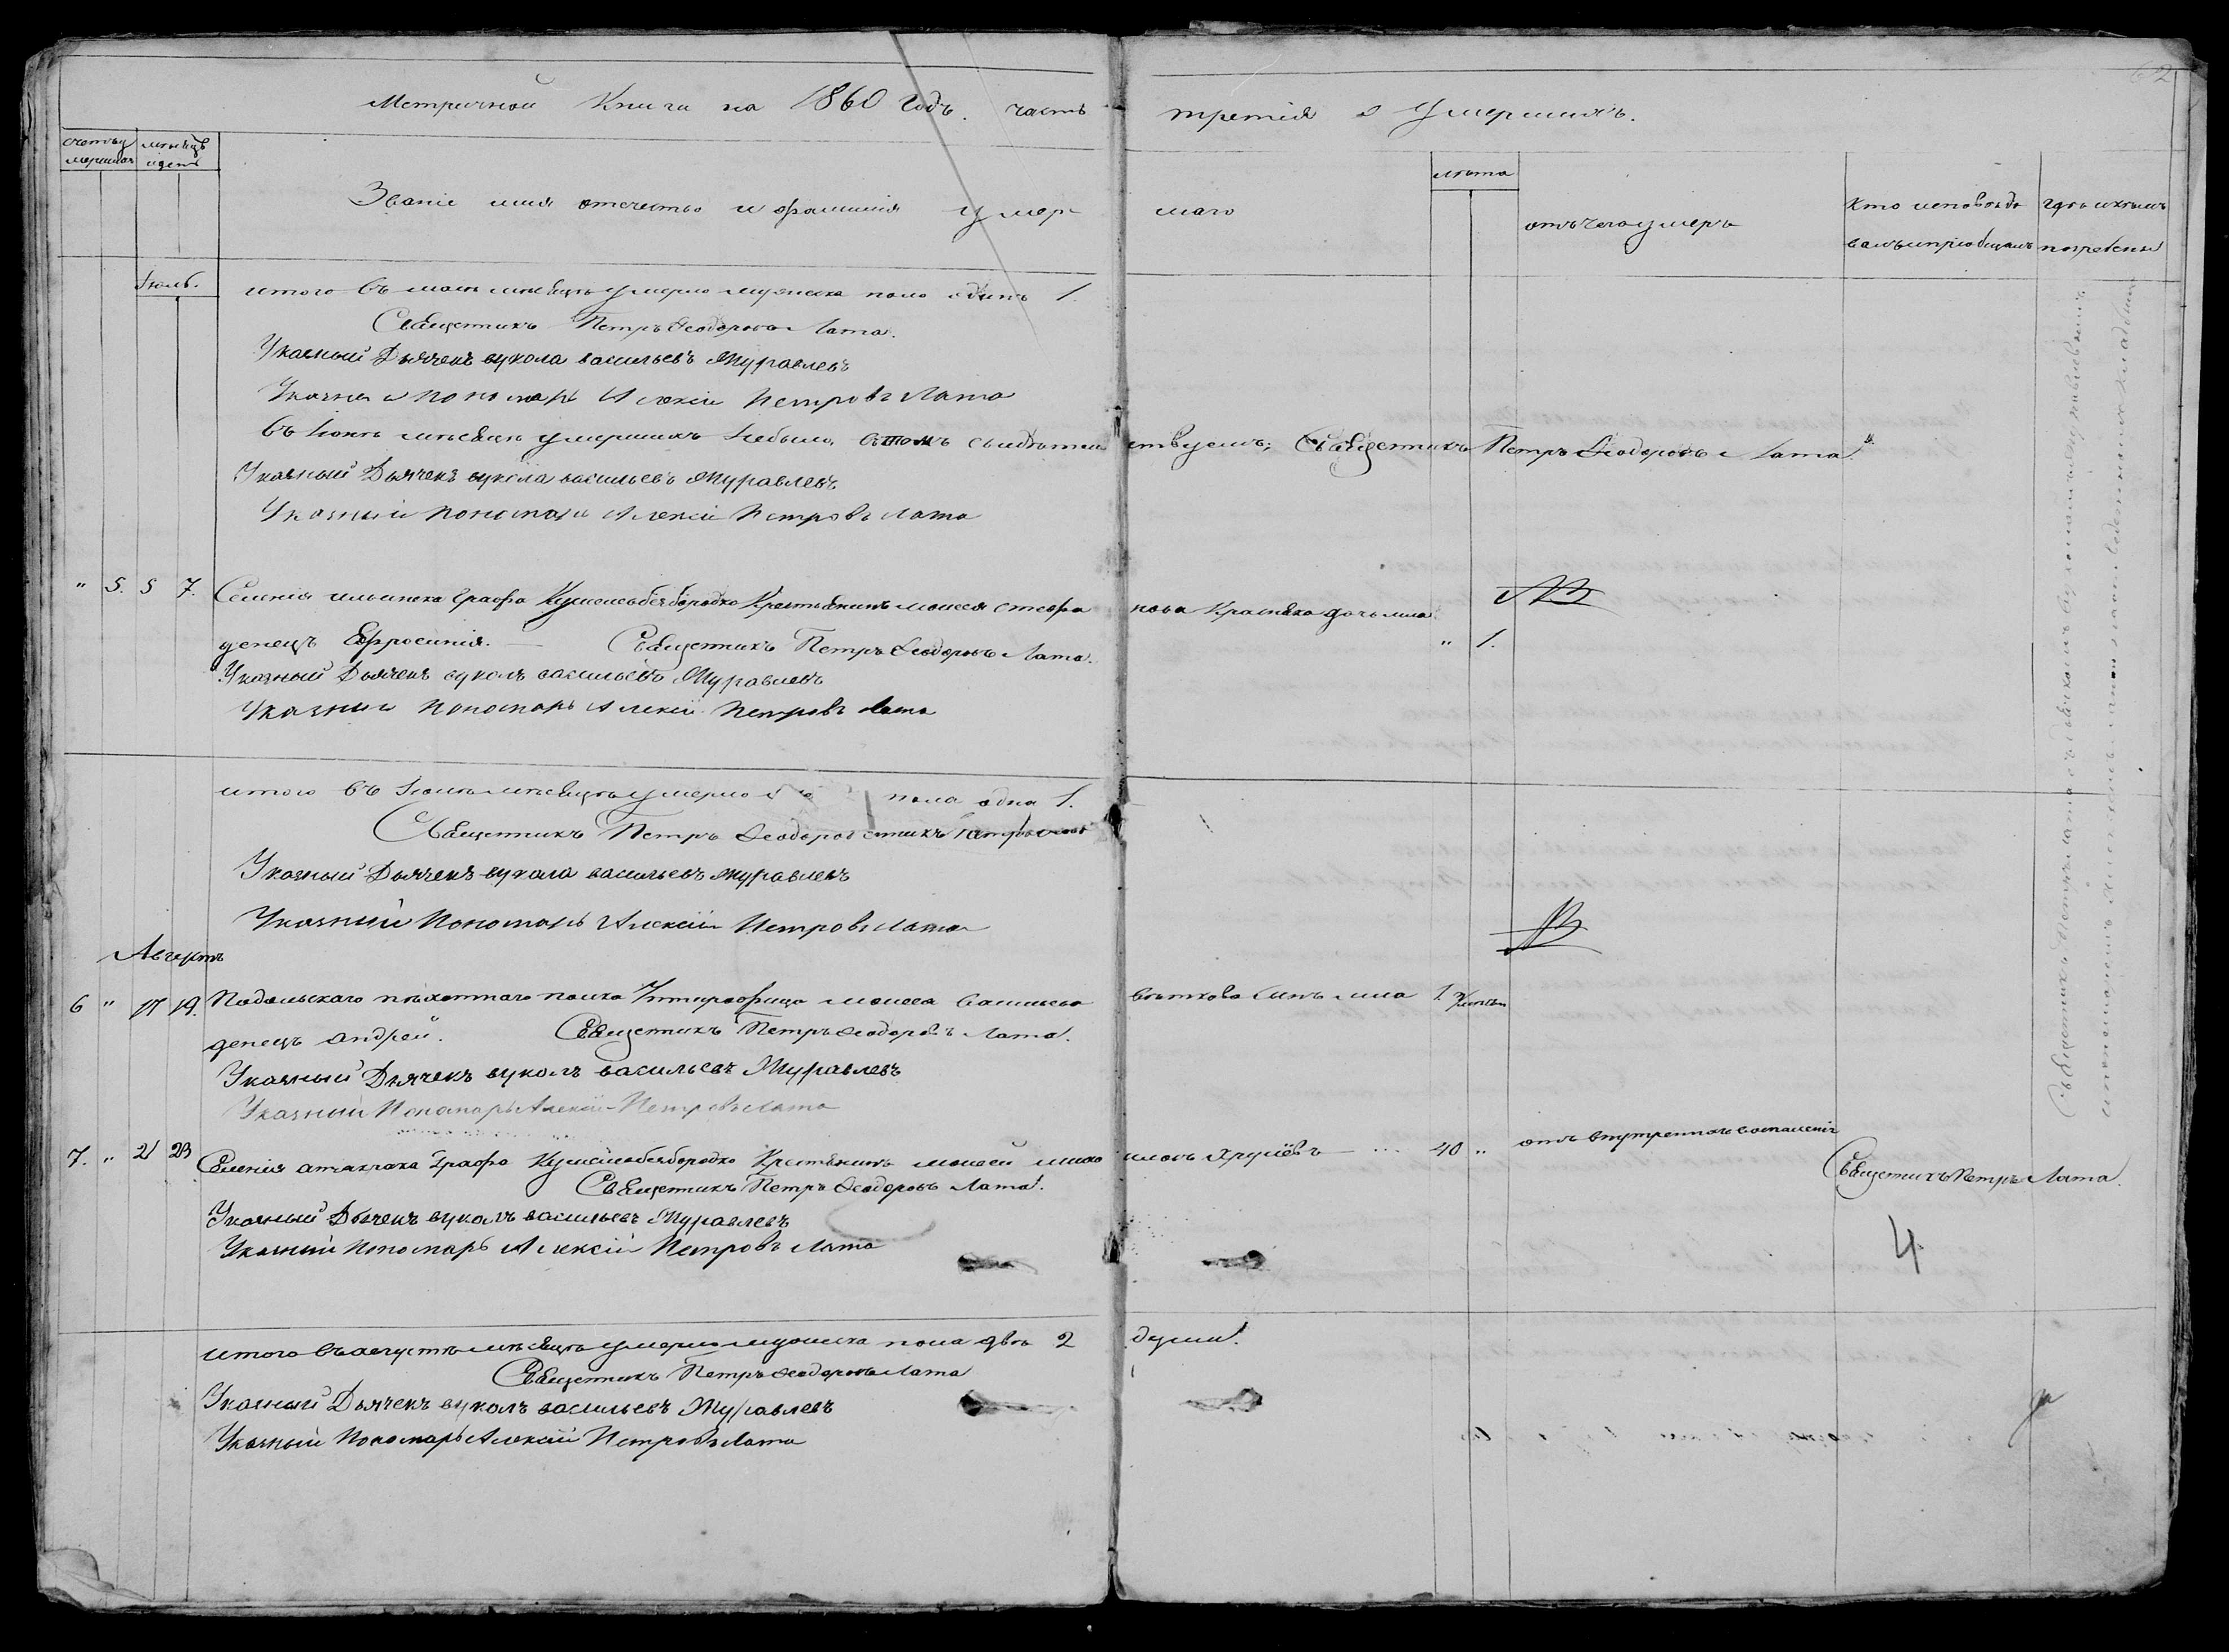 62
Метричной Книги на 1860 Годъ. часть третія о Умершихъ.
счетъ у мершихъ
мѣсяцъ и день
Званіе имя отечество и фамилія умер шаго
лѣта
отъ чего умеръ
Кто исповѣды валъ и пріобщалъ
гдѣ и кѣмъ погребены
Іюль.
итого въ маѣ мѣсяцѣ умерло мужеска пола одинъ 1.
Священникъ Петръ Ѳеодоровъ Лата.
Указный Дьячекъ вукола васильевъ Журавлевъ
Указный Пономарь Алексій Петровъ Лата
Въ Іюнѣ мѣсяцѣ умершихъ небыло, вътомъ свидѣтель ствуемъ: Священникъ Петръ Ѳеодоровъ Лата.
Указный Дьячекъ вукола васильевъ Журавлевъ
Указный Пономарь Алексій Петровъ Лата
" 5. 5 7. Селенія ильинска Графа Кушелебезбородко Крестьянина моисея стефа нова Красняка дочь мла
денецъ Евфросинія. — Священникъ Петръ Ѳеодоровъ Лата. " 1.
Указный Дьячекъ вуколъ васильевъ Журавлевъ
Указный Пономарь Алексій Петровъ Лата
итого въ Іюлѣ мѣсяцѣ умерло пола одна 1.
Священникъ Петръ Ѳеодоров
Указный Дьячекъ вукола васильевъ Журавлевъ
Указный Пономарь Алексій Петровъ Лата
Августъ
6 " 17 19. Подольскаго пѣхотнаго полка Унтирофицера моисея васильева вѣткова Сынъ мла 1.
денецъ андрей. Священникъ Петръ Ѳеодоровъ Лата.
Указный Дьячекъ вуколъ васильевъ Журавлевъ
Указный Пономарь Алексій Петровъ Лата
7. " 21 23 Селенія атакчака Графа Кушелебезбородко Крестьянинъ моисей михаи иловъ Хрулёвъ — 40 " отъ внутренняго воспаленія
Священникъ Петръ Ѳеодоровъ Лата.
Священникъ Петръ Лата.
Указный Дьячекъ вуколъ васильевъ Журавлевъ
Указный Пономарь Алексій Петровъ Лата
4
итого въ августѣ мѣсяцѣ умерло мужеска пола двѣ 2 души.
Священникъ Петръ Ѳеодоровъ Лата
Указный Дьячекъ вуколъ васильевъ Журавлевъ
Указный Пономарь Алексій Петровъ Лата